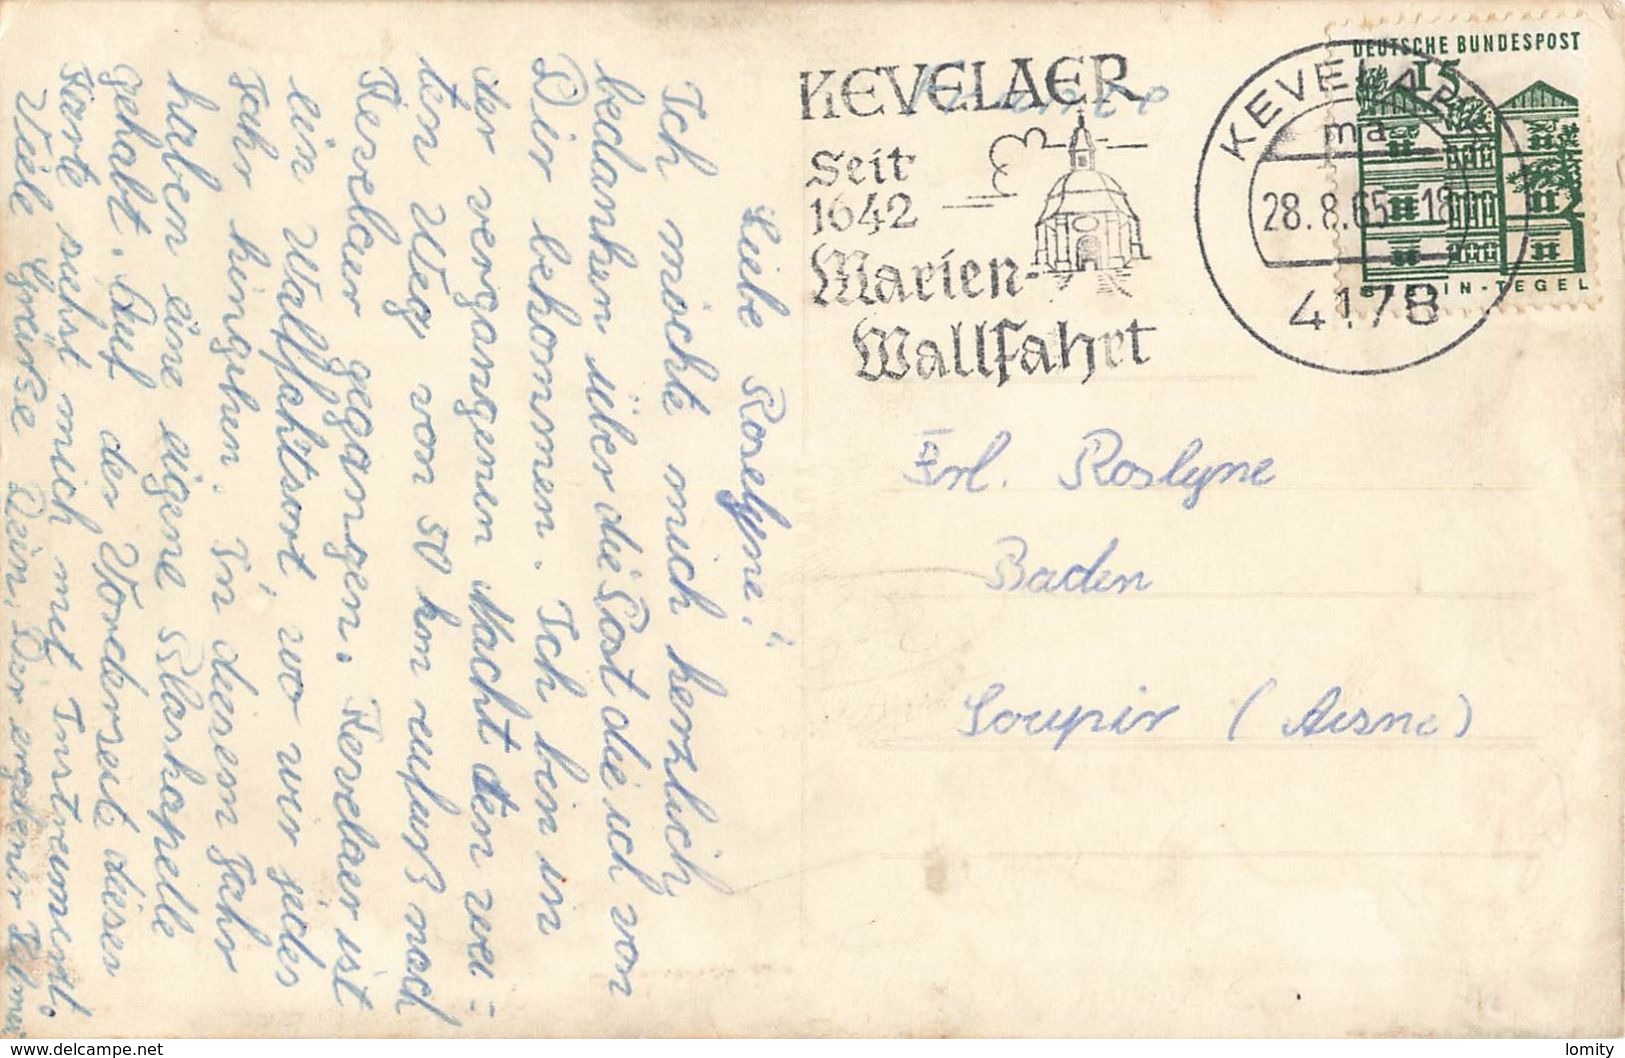 Liebe Roselyne!
Ich möchte mich herzlich
bedanken über die Post die ich von
Dir bekommen. Ich bin in
der vergangenen Nacht den wei-
ten Weg von 50 km zufuß nach
Kevelaer gegangen. Kevelaer ist
ein Wallfahrtsort, wo wir jedes
Jahr hingehen. In diesem Jahr
haben eine eigene Klarkapelle
gehabt. Auf der Vorderseite dieser
Karte siehst mich mit Instrument.
Viele Grüße Dein, Dir ergebener
KEVELAER
Seit
1642
Marien-
Wallfahrt
DEUTSCHE BUNDESPOST
15
BERLIN-TEGEL
KEVELAER
ma
28.8.65-18
4178
Frl. Roslyne
Baden
Soupir (Aisne)
delcampe.net
lomity